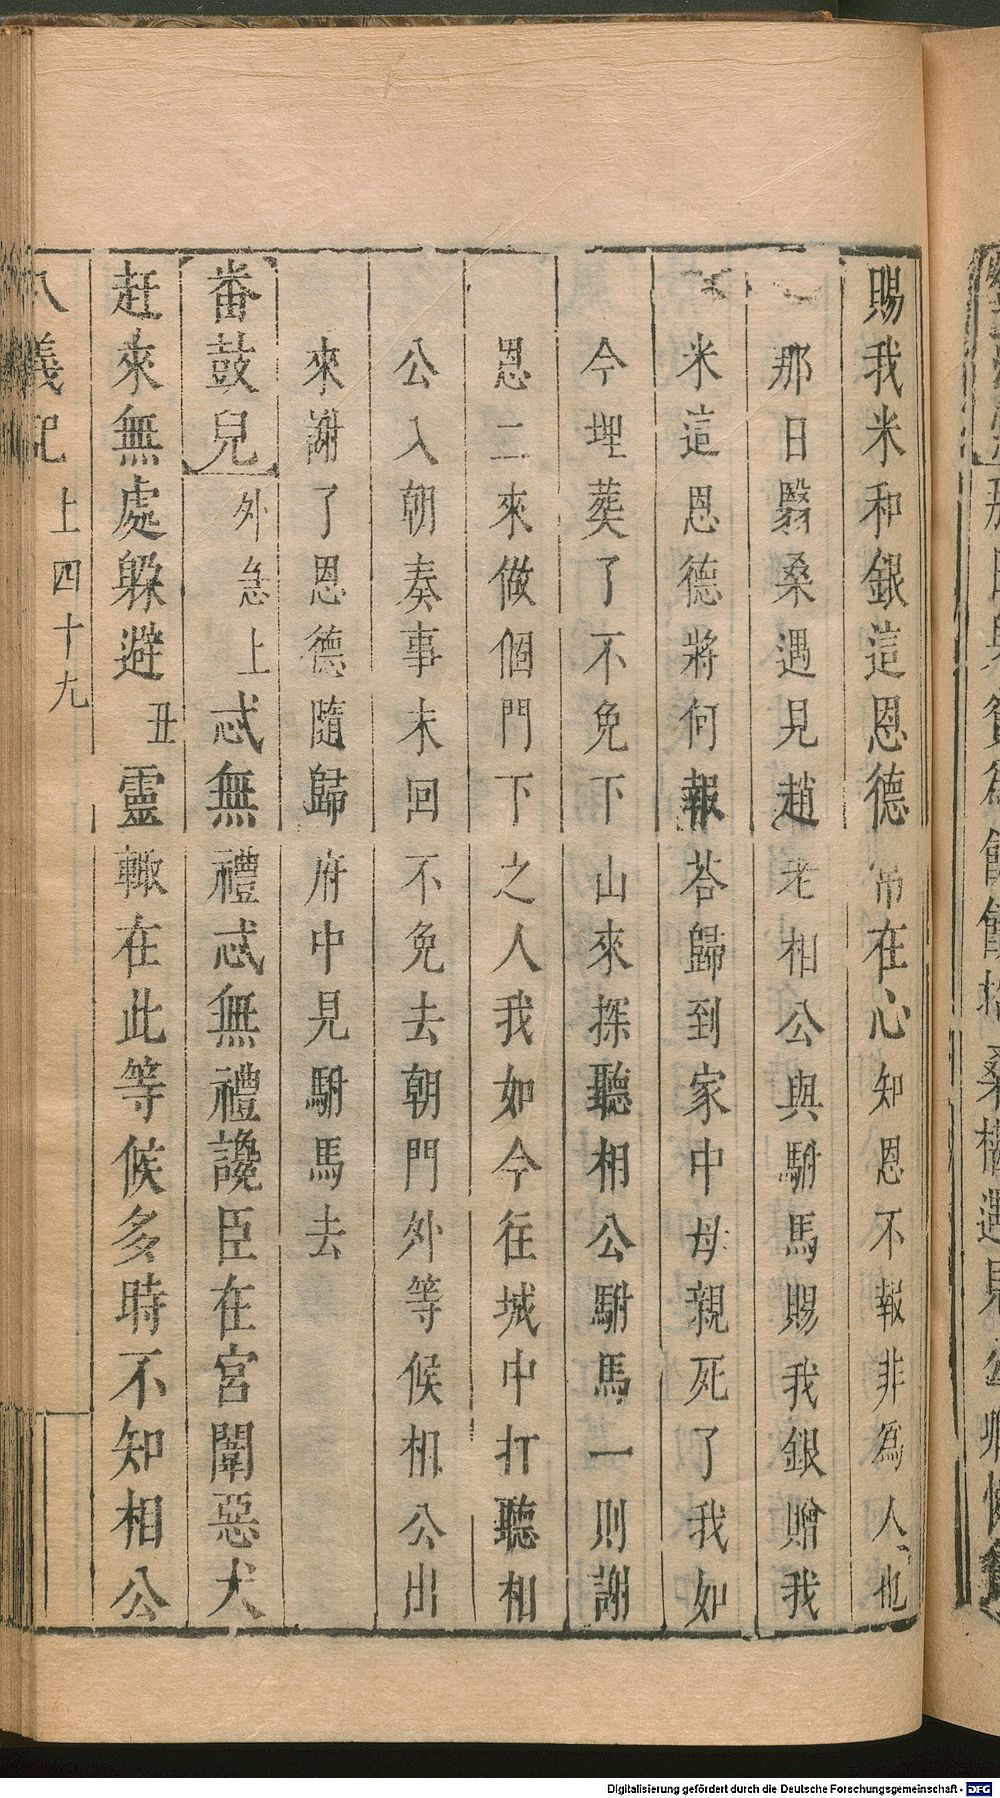 賜我米和銀這恩德常在心知恩不報非為人也
那日翳桑遇見趙老相公與駙馬賜我銀贈我
米這恩德將何報荅歸到家中母親死了我如
今埋葬了不免下山來探聽相公駙馬一則謝
恩二來做個門下之人我如今往城中打聽相
公入朝奏事未回不免去朝門外等候相公出
來謝了恩德隨歸府中見駙馬去
番鼓兒外急上忒無禮忒無禮讒臣在宮闈惡犬
赶來無處躲避丑靈輒在此等候多時不知相公
八義記 上四十九
Digitalisierung gefördert durch die Deutsche Forschungsgemeinschaft - DFG